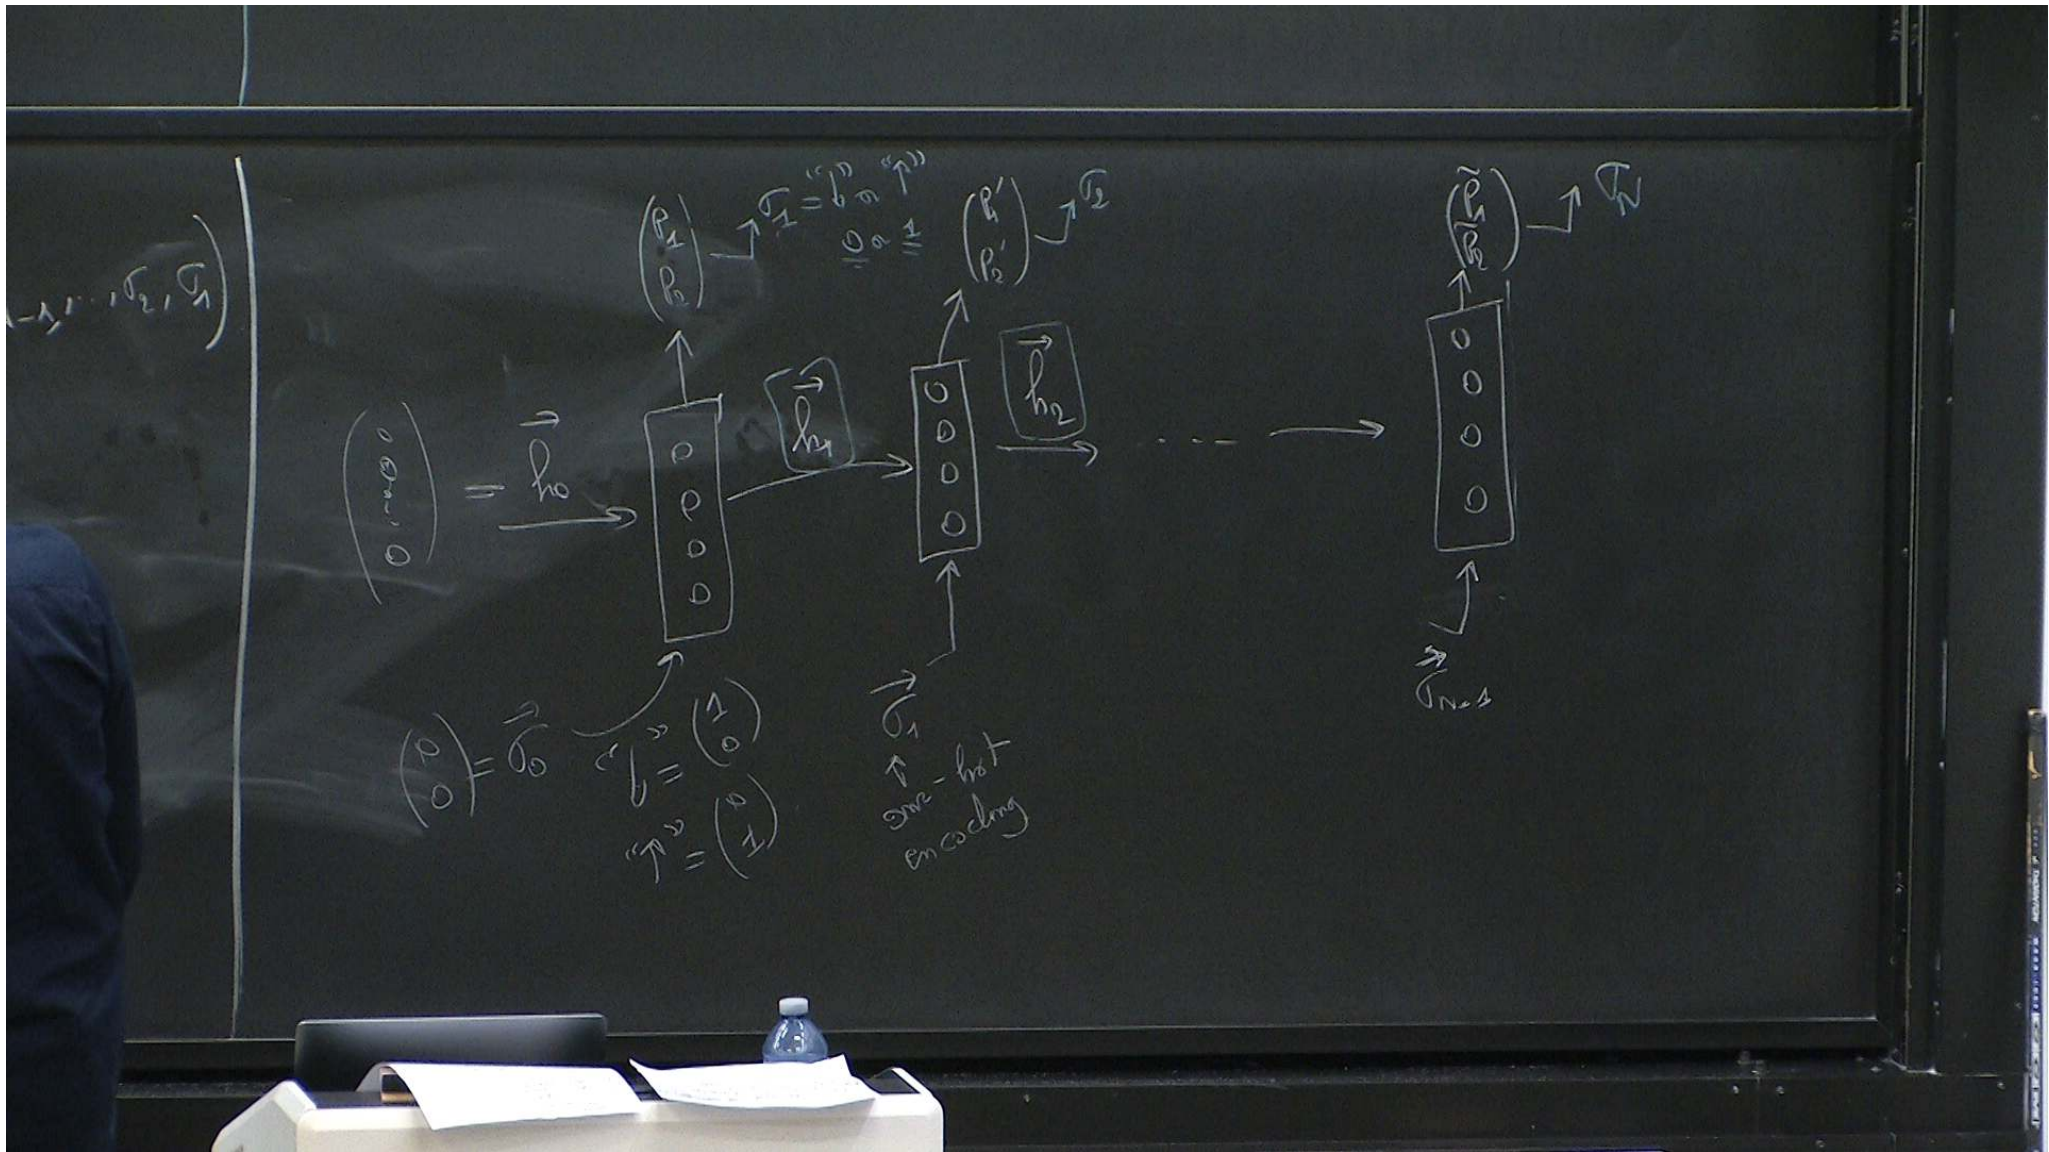 -1, ..., σ₂, σ₁)
(p₁ p₂) → σ₁ = "↓" or "↑"
0 or 1
(p₁' p₂') → σ₂
(p̃₁ p̃₂) → σ_N
= h⃗₀
h⃗₁
h⃗₂
....
(0 0) = σ⃗₀
"↓" = (1 0)
"↑" = (0 1)
σ⃗₁
↑
one-hot
encoding
σ⃗_{N-1}